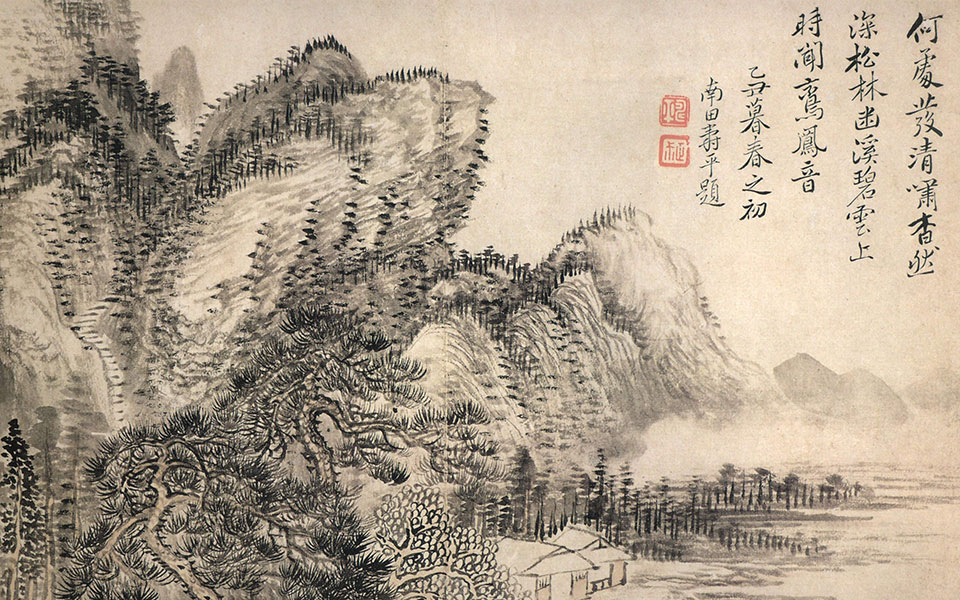 何處發清嘯杳然
深松林幽溪碧雲上
時聞鸞鳳音
乙丑暮春之初
南田壽平題